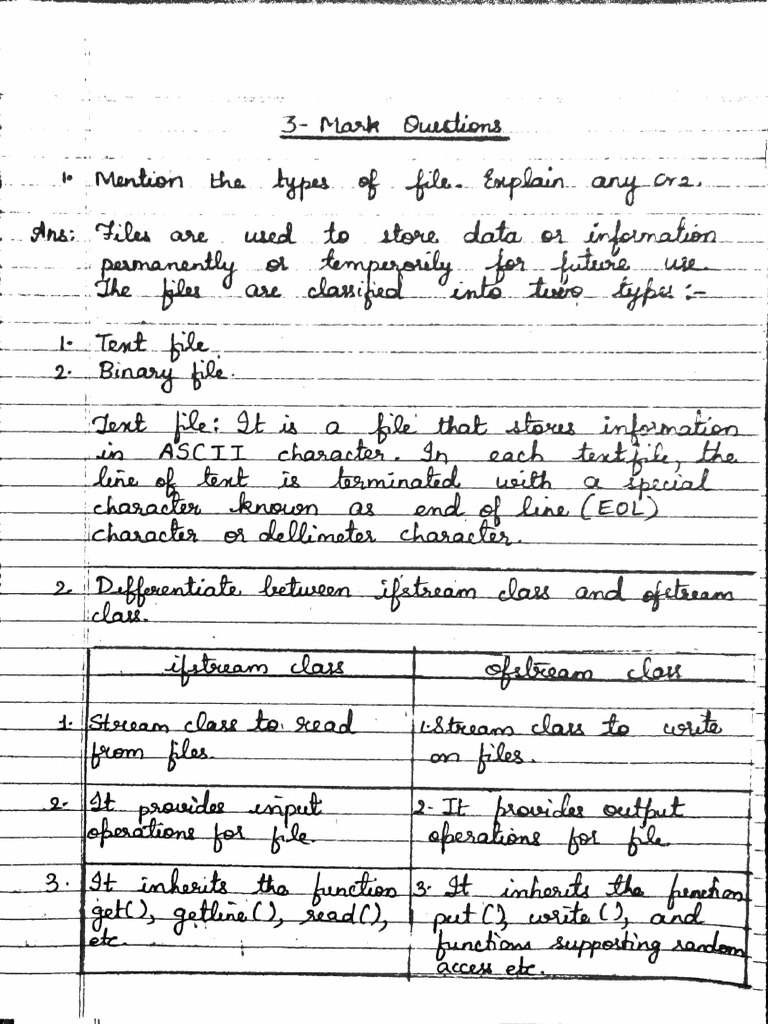 3- Mark Questions
1. Mention the types of file. Explain any one.
Ans: Files are used to store data or information
permanently or temperorily for future use.
The files are classified into two types :-
1. Text file
2. Binary file.
Text file: It is a file that stores information
in ASCII character. In each textfile, the
line of text is terminated with a special
character known as end of line (EOL)
character or dellimeter character.
2. Differentiate between ifstream class and ofstream
class.
ifstream class ofstream class
1. Stream class to read 1. Stream class to write
from files. on files.
2. It provides input 2- It provides output
operations for file. operations for file.
3. It inherits the function 3. It inherits the function
get(), getline(), read(), put(), write(), and
etc. functions supporting random
access etc.